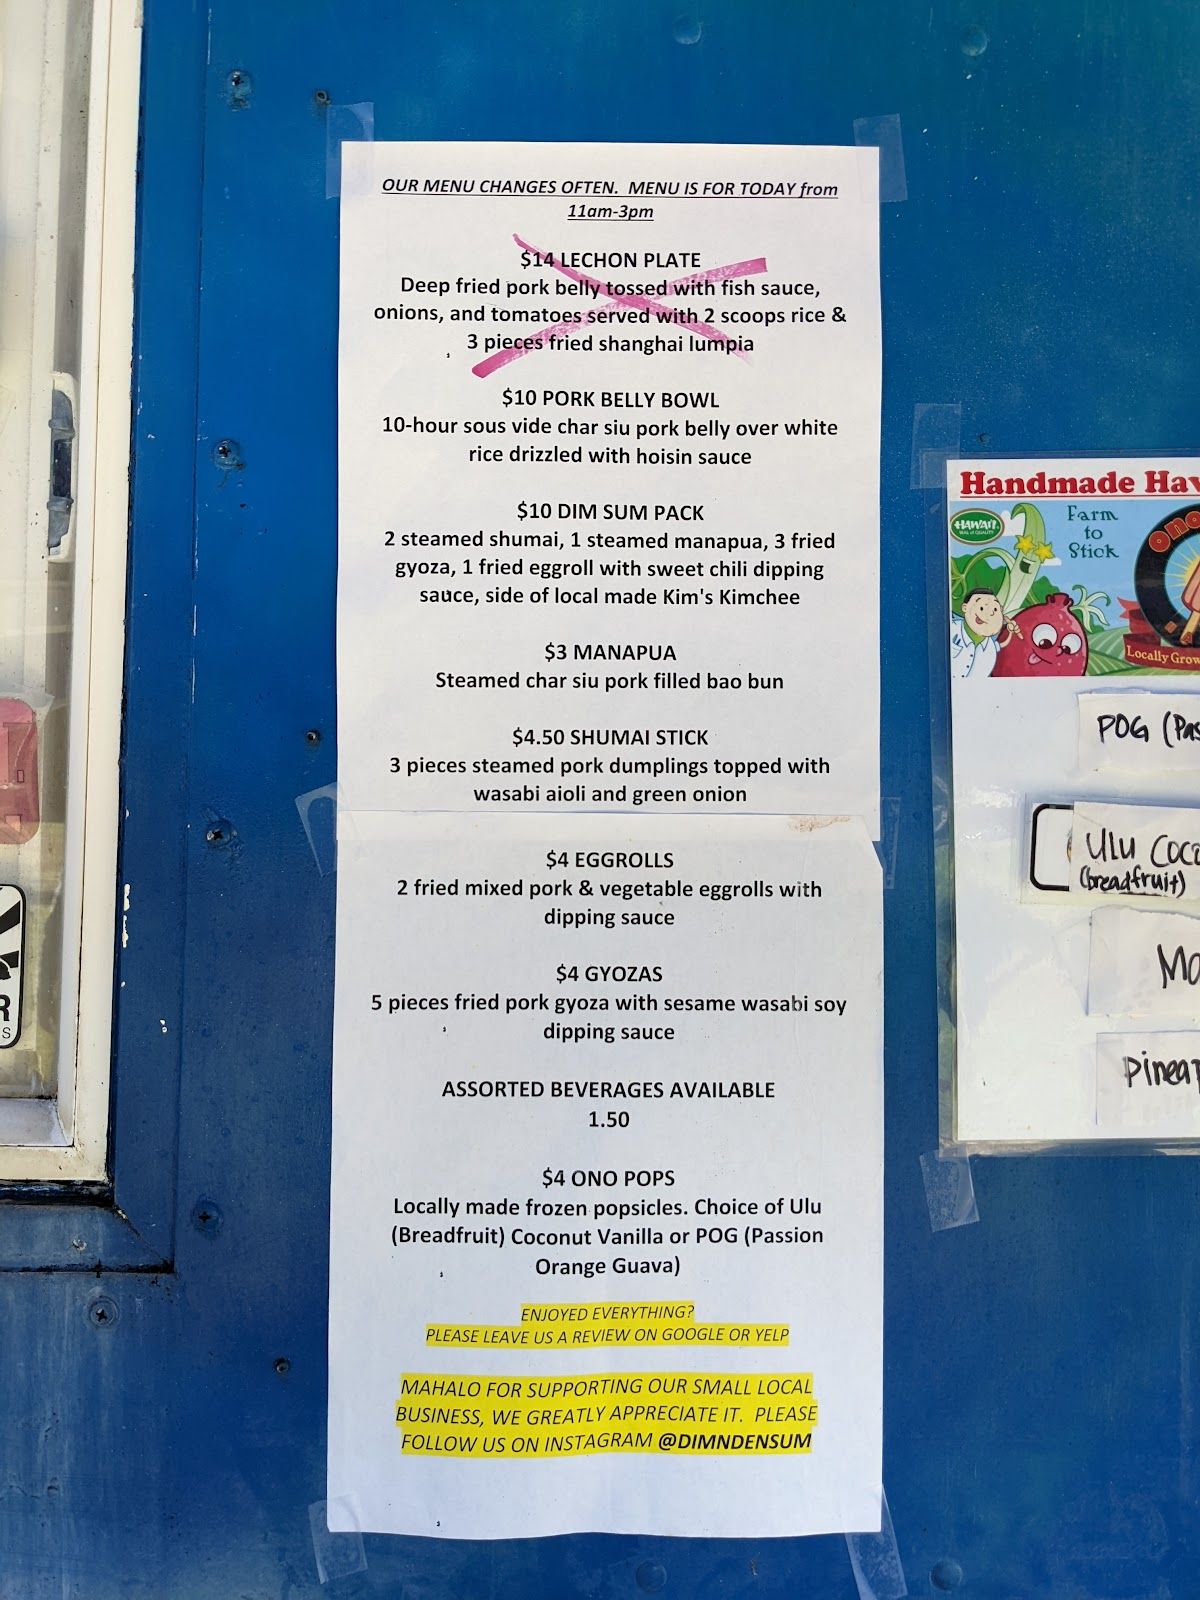 OUR MENU CHANGES OFTEN. MENU IS FOR TODAY from
11am-3pm
$14 LECHON PLATE
Deep fried pork belly tossed with fish sauce,
onions, and tomatoes served with 2 scoops rice &
3 pieces fried shanghai lumpia
$10 PORK BELLY BOWL
10-hour sous vide char siu pork belly over white
rice drizzled with hoisin sauce
$10 DIM SUM PACK
2 steamed shumai, 1 steamed manapua, 3 fried
gyoza, 1 fried eggroll with sweet chili dipping
sauce, side of local made Kim's Kimchee
$3 MANAPUA
Steamed char siu pork filled bao bun
$4.50 SHUMAI STICK
3 pieces steamed pork dumplings topped with
wasabi aioli and green onion
$4 EGGROLLS
2 fried mixed pork & vegetable eggrolls with
dipping sauce
$4 GYOZAS
5 pieces fried pork gyoza with sesame wasabi soy
dipping sauce
ASSORTED BEVERAGES AVAILABLE
1.50
$4 ONO POPS
Locally made frozen popsicles. Choice of Ulu
(Breadfruit) Coconut Vanilla or POG (Passion
Orange Guava)
ENJOYED EVERYTHING?
PLEASE LEAVE US A REVIEW ON GOOGLE OR YELP
MAHALO FOR SUPPORTING OUR SMALL LOCAL
BUSINESS, WE GREATLY APPRECIATE IT. PLEASE
FOLLOW US ON INSTAGRAM @DIMNDENSUM
Handmade Hav
HAWAI'I
Farm
to
Stick
Ono
Locally Grow
POG (Pas
Ulu Coco
(breadfruit)
Ma
Pineap